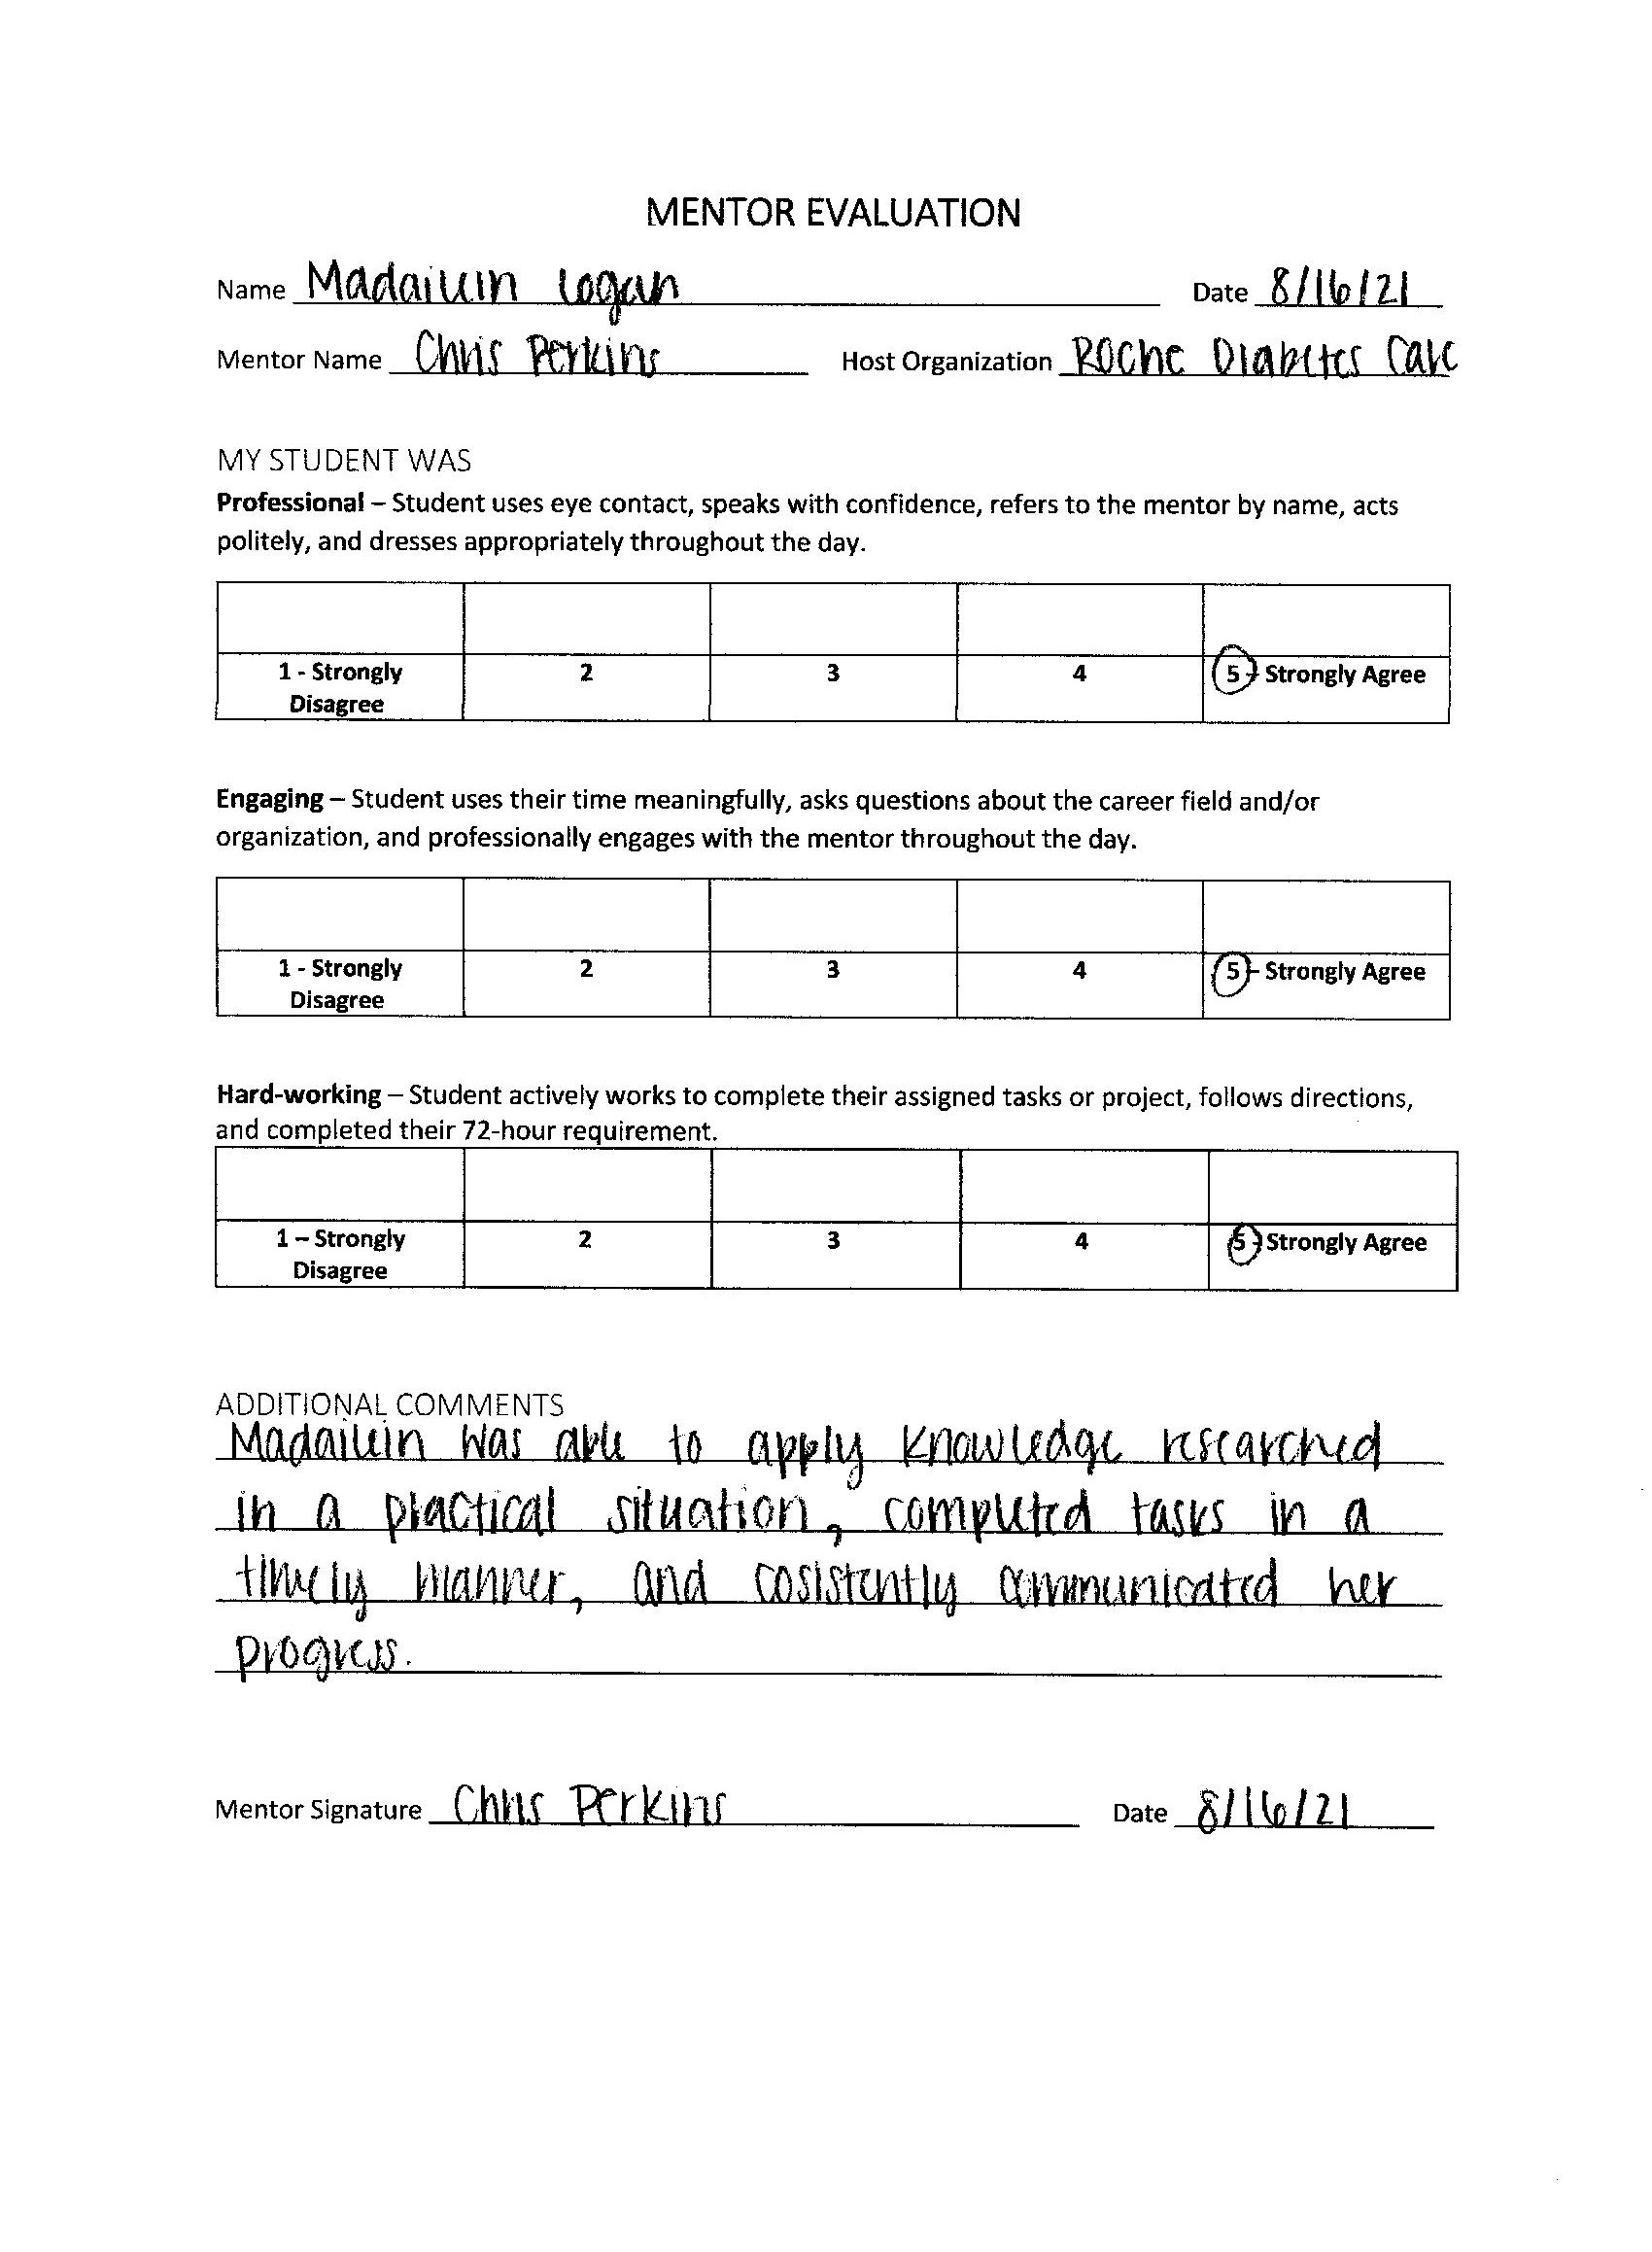 MENTOR EVALUATION
Name Madailein Logan Date 8/16/21
Mentor Name Chris Perkins Host Organization Roche Diabetes Care
MY STUDENT WAS
Professional – Student uses eye contact, speaks with confidence, refers to the mentor by name, acts
politely, and dresses appropriately throughout the day.
1 - Strongly Disagree 2 3 4 5 - Strongly Agree
Engaging – Student uses their time meaningfully, asks questions about the career field and/or
organization, and professionally engages with the mentor throughout the day.
1 - Strongly Disagree 2 3 4 5 - Strongly Agree
Hard-working – Student actively works to complete their assigned tasks or project, follows directions,
and completed their 72-hour requirement.
1 – Strongly Disagree 2 3 4 5 - Strongly Agree
ADDITIONAL COMMENTS
Madailein was able to apply knowledge researched
in a practical situation, completed tasks in a
timely manner, and cosistently communicated her
progress.
Mentor Signature Chris Perkins Date 8/16/21